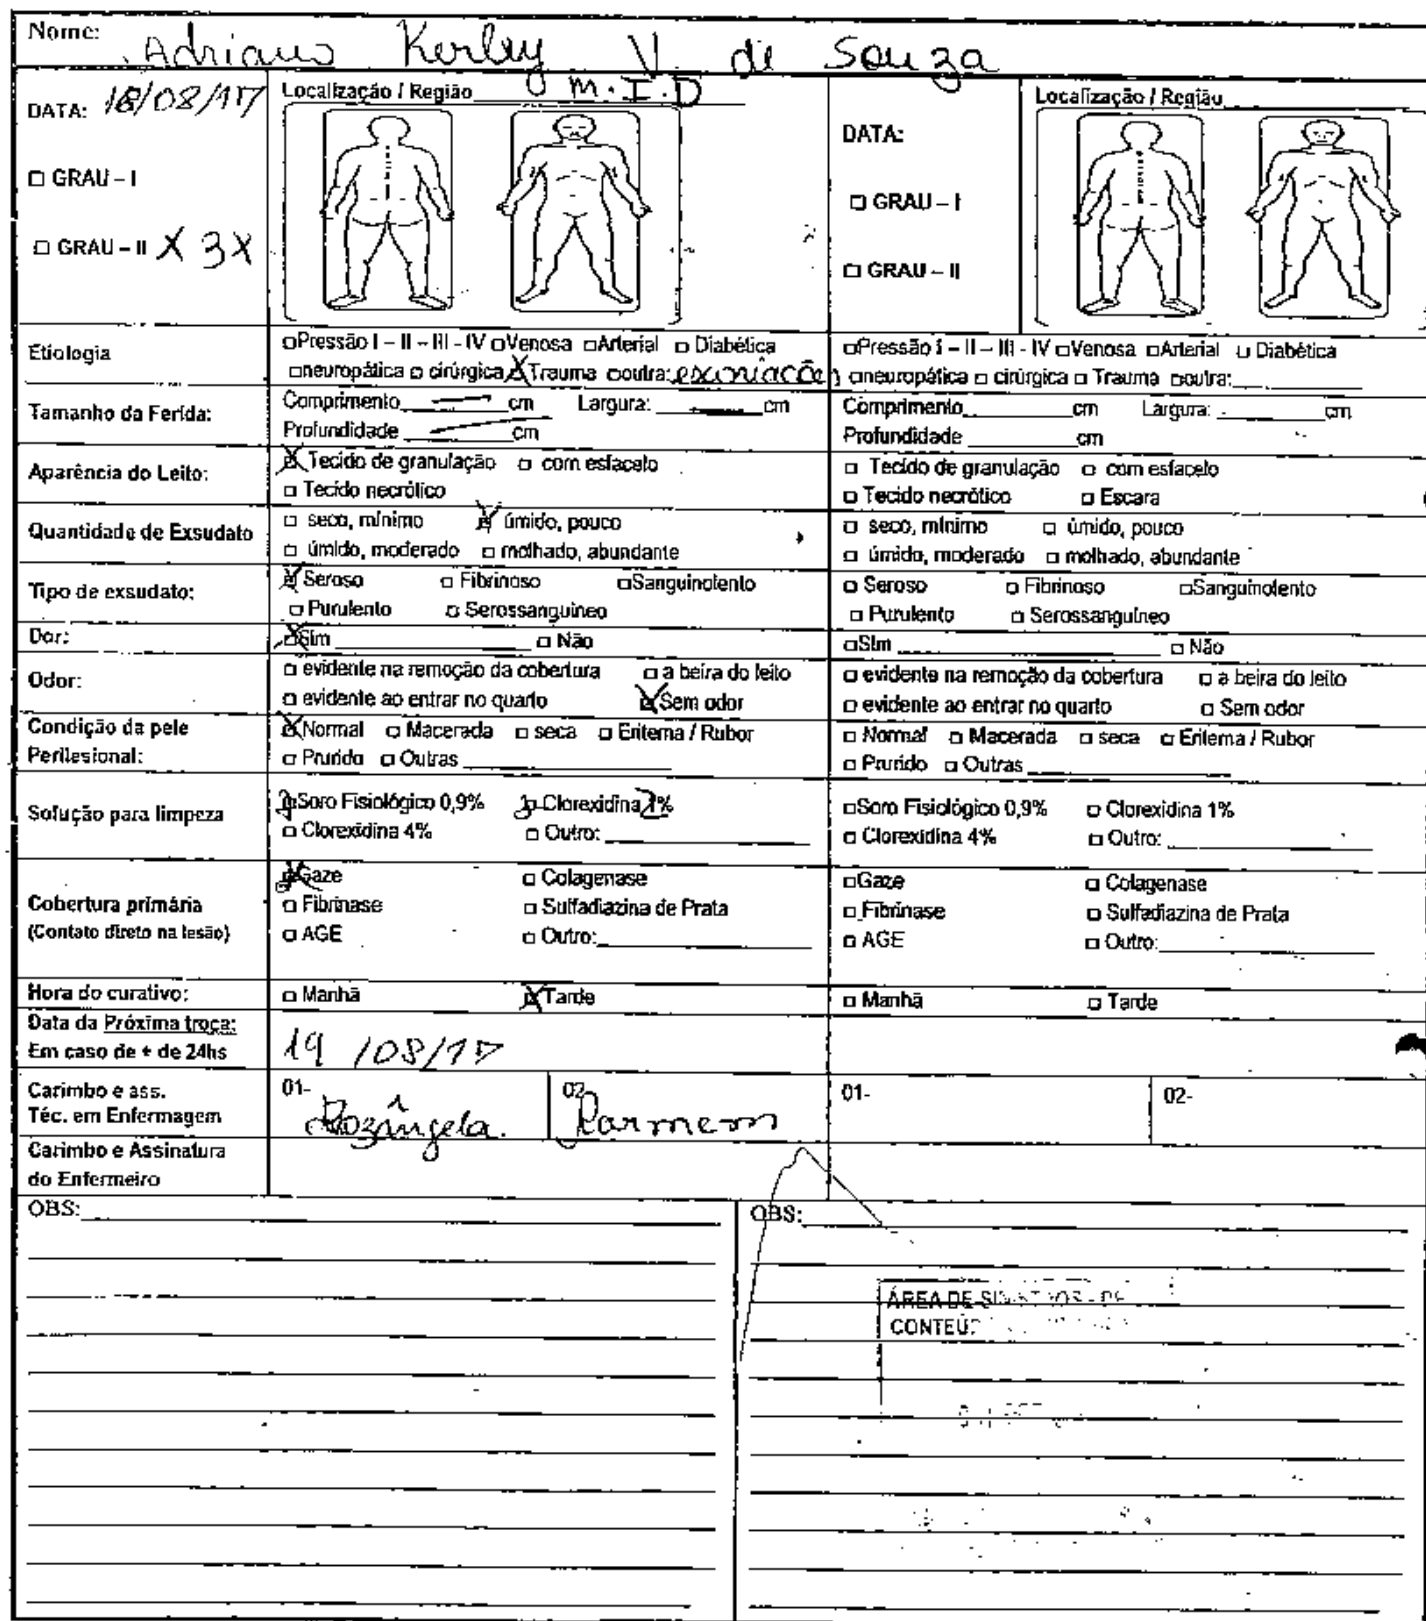 Nome: Adriano Kerley V. de Souza
DATA: 18/08/17
Localização / Região M.I.D
□ GRAU – I
□ GRAU – II X 3X
DATA:
Localização / Região
□ GRAU – I
□ GRAU – II
Etiologia
□Pressão I – II – III - IV □Venosa □Arterial □ Diabética
□neuropática □ cirúrgica X Trauma □outra: escoriações
□Pressão I – II – III - IV □Venosa □Arterial □ Diabética
□neuropática □ cirúrgica □ Trauma □outra:
Tamanho da Ferida:
Comprimento — cm Largura: — cm
Profundidade — cm
Comprimento cm Largura: cm
Profundidade cm
Aparência do Leito:
X Tecido de granulação □ com esfacelo
□ Tecido necrótico
□ Tecido de granulação □ com esfacelo
□ Tecido necrótico □ Escara
Quantidade de Exsudato
□ seco, mínimo X úmido, pouco
□ úmido, moderado □ molhado, abundante
□ seco, mínimo □ úmido, pouco
□ úmido, moderado □ molhado, abundante
Tipo de exsudato:
X Seroso □ Fibrinoso □Sanguinolento
□ Purulento □ Serossanguíneo
□ Seroso □ Fibrinoso □Sanguinolento
□ Purulento □ Serossanguíneo
Dor:
X Sim □ Não
□Sim □ Não
Odor:
□ evidente na remoção da cobertura □ a beira do leito
□ evidente ao entrar no quarto X Sem odor
□ evidente na remoção da cobertura □ a beira do leito
□ evidente ao entrar no quarto □ Sem odor
Condição da pele
Perilesional:
X Normal □ Macerada □ seca □ Eritema / Rubor
□ Prurido □ Outras
□ Normal □ Macerada □ seca □ Eritema / Rubor
□ Prurido □ Outras
Solução para limpeza
□Soro Fisiológico 0,9% □ Clorexidina %
□ Clorexidina 4% □ Outro:
□Soro Fisiológico 0,9% □ Clorexidina 1%
□ Clorexidina 4% □ Outro:
Cobertura primária
(Contato direto na lesão)
X Gaze □ Colagenase
□ Fibrinase □ Sulfadiazina de Prata
□ AGE □ Outro:
□Gaze □ Colagenase
□ Fibrinase □ Sulfadiazina de Prata
□ AGE □ Outro:
Hora do curativo:
□ Manhã X Tarde
□ Manhã □ Tarde
Data da Próxima troca:
Em caso de + de 24hs
19 /08/17
Carimbo e ass.
Téc. em Enfermagem
01- Rozângela.
02 Carmem
01-
02-
Carimbo e Assinatura
do Enfermeiro
OBS:
OBS:
ÁREA DE